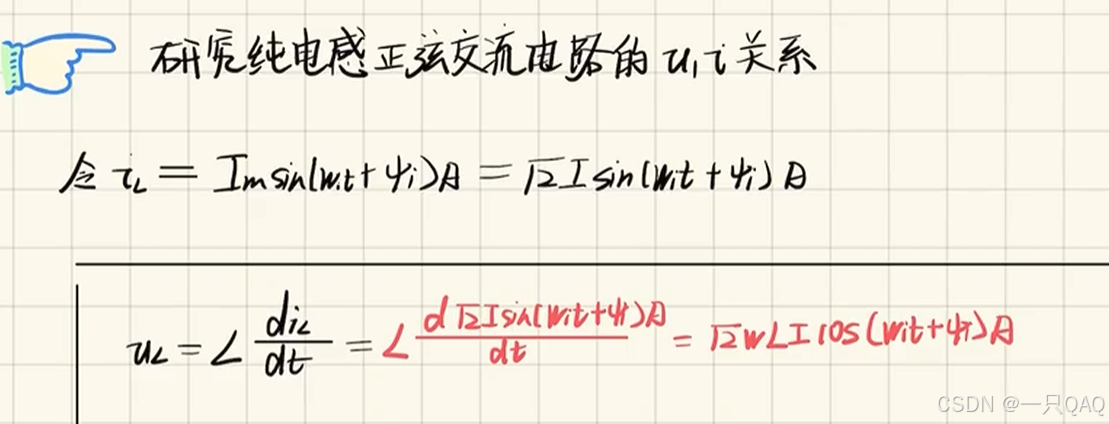 研究纯电感正弦交流电路的 u, i 关系
令 i_L = Im sin(wit + ψi)A = √2 I sin(wit + ψi) A
u_L = L di_L/dt = L d√2Isin(wit+ψi)A/dt = √2 wLI cos(wit+ψi)A
CSDN @一只QAQ